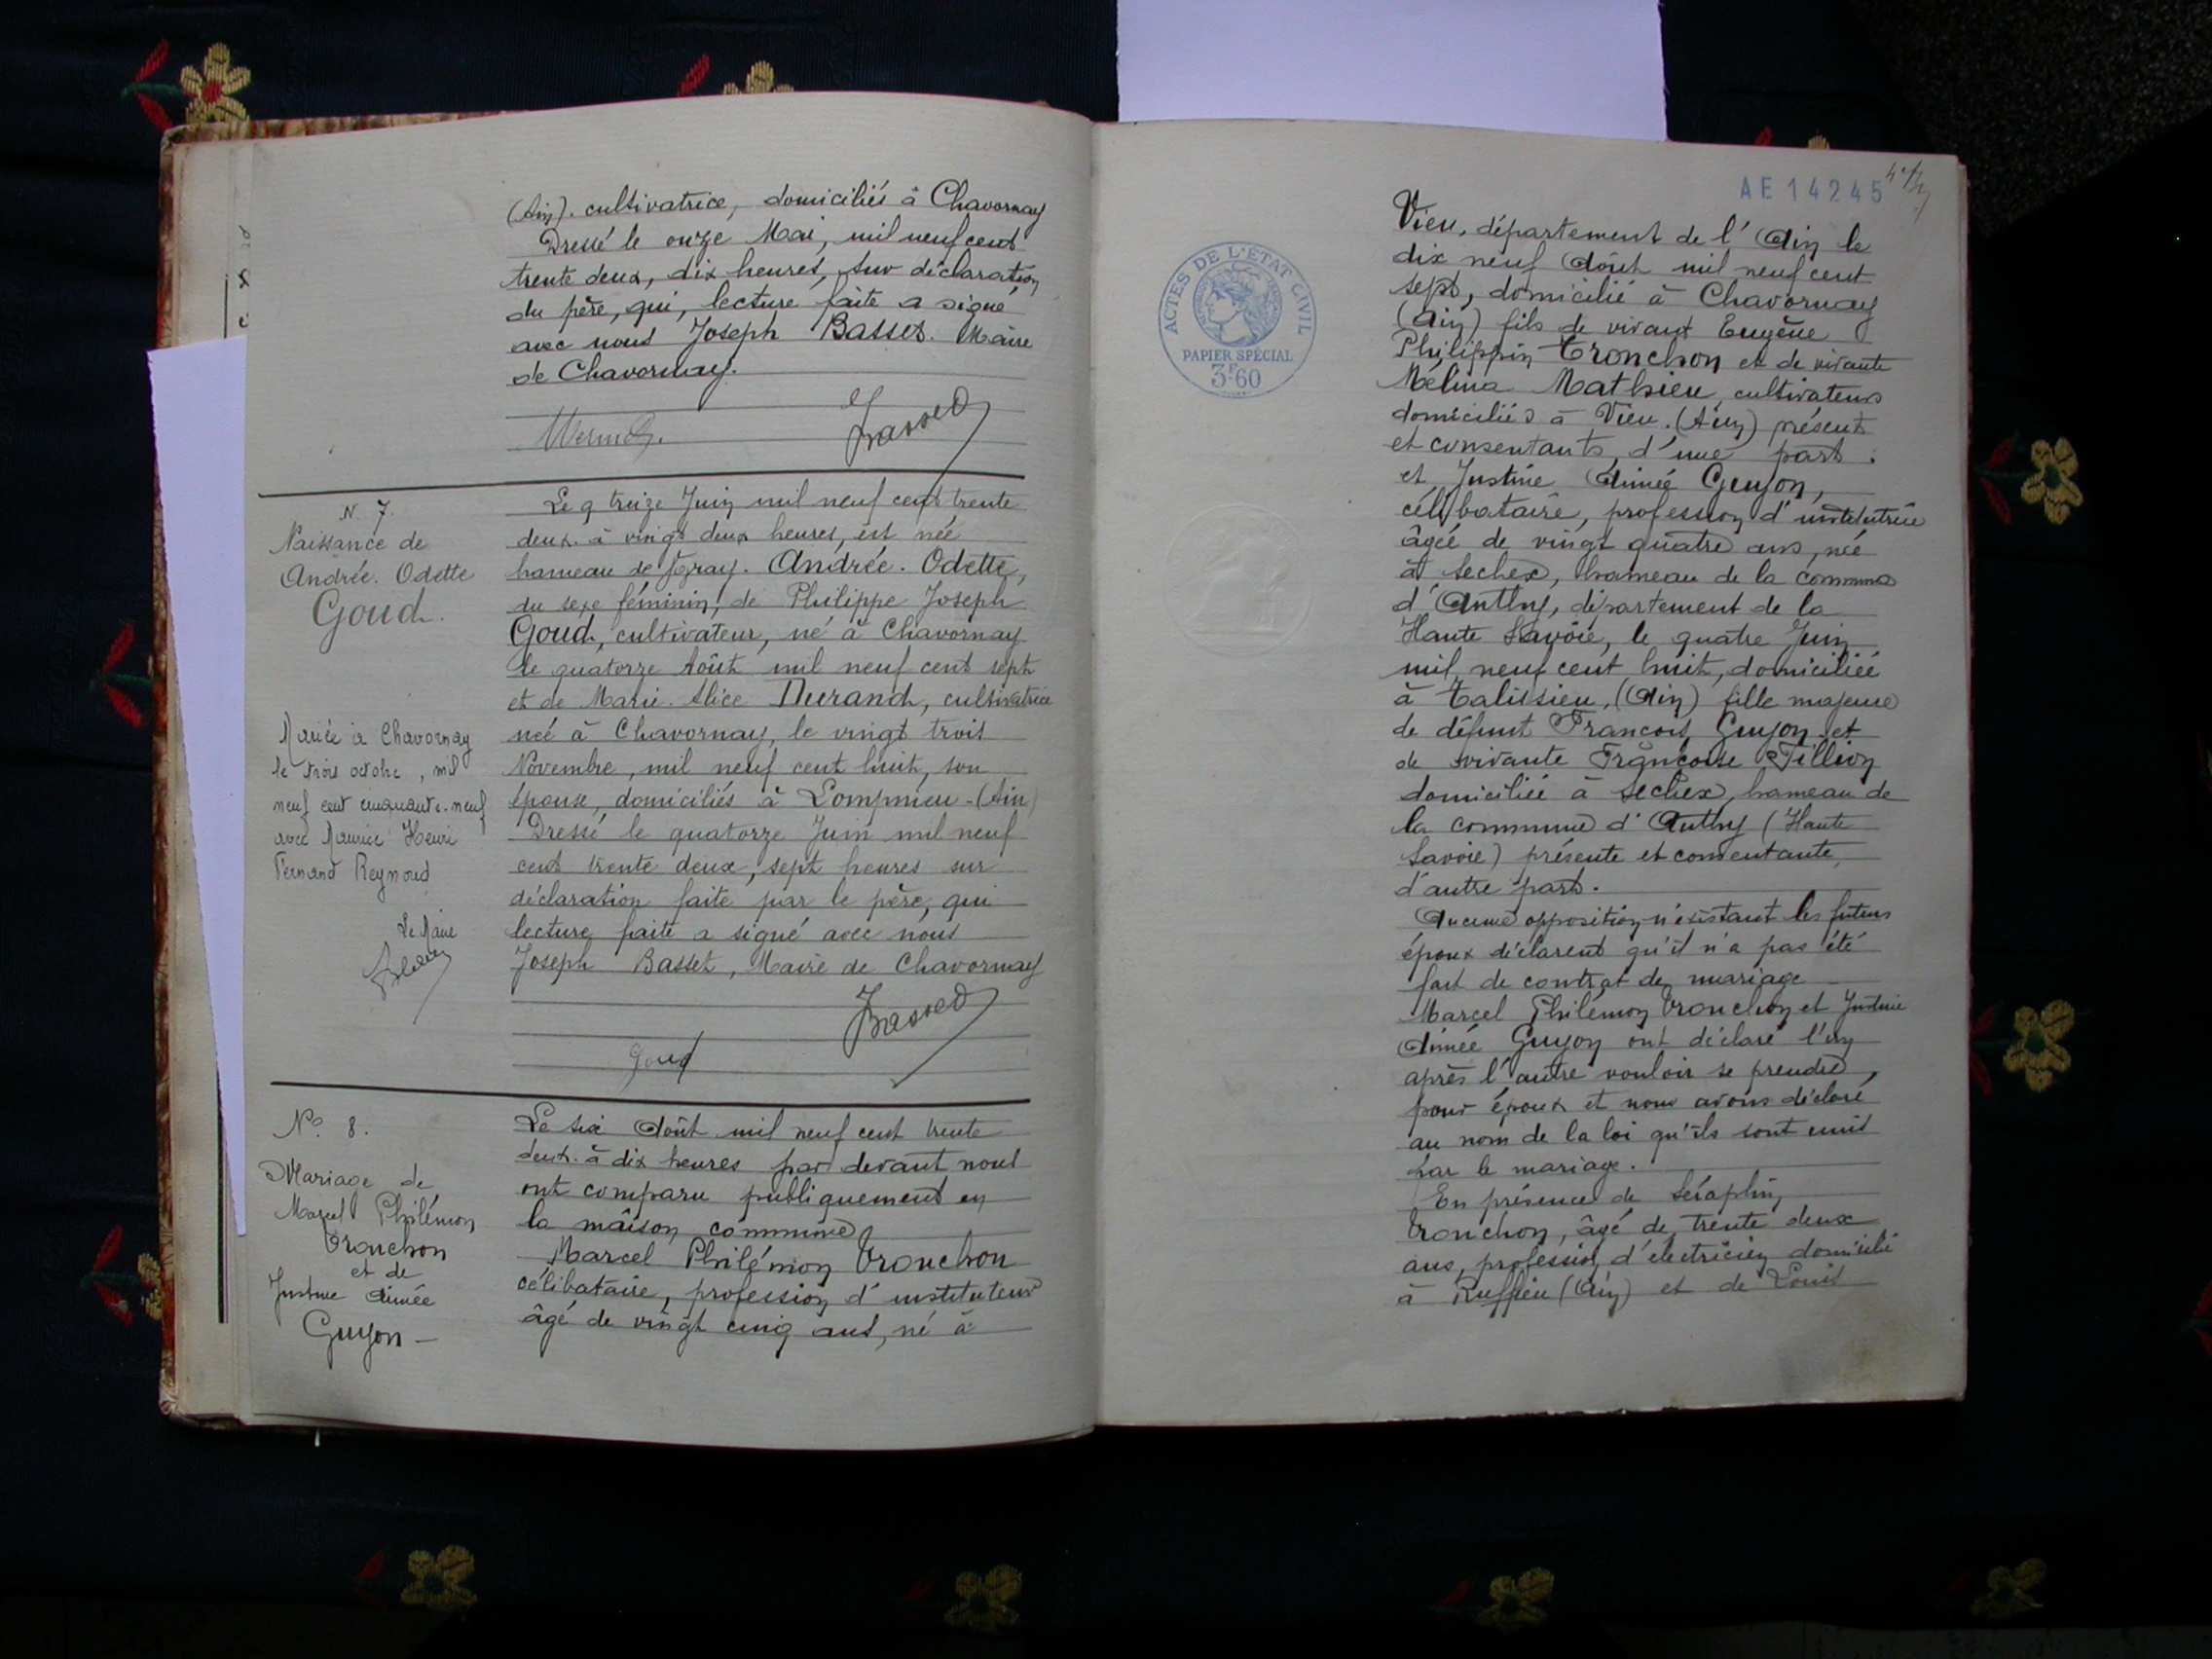 (Ain). cultivatrice, domiciliés à Chavornay
Dressé le onze Mai, mil neuf cent
trente deux, dix heures, sur déclaration
du père, qui, lecture faite a signé
avec nous Joseph Basset. Maire
de Chavornay.
Basset
N. 7.
Naissance de
Andrée. Odette
Goud.
Mariée à Chavornay
le trois octobre, mil
neuf cent cinquante-neuf
avec Maurice Henri
Fernand Reynaud
Le Maire
Le treize Juin mil neuf cent trente
deux. à vingt deux heures, est née
hameau de Andrée. Odette,
du sexe féminin, de Philippe Joseph
Goud, cultivateur, né à Chavornay
le quatorze Août mil neuf cent sept
et de Marie. Alice Durand, cultivatrice
née à Chavornay, le vingt trois
Novembre, mil neuf cent huit, son
épouse, domiciliés à Lompnieu-(Ain)
Dressé le quatorze Juin mil neuf
cent trente deux, sept heures sur
déclaration faite par le père, qui
lecture faite a signé avec nous
Joseph Basset, Maire de Chavornay
Basset
Goud
No. 8.
Mariage de
Marcel Philémon
Tronchon
et de
Justine Aimée
Guyon -
Le six Août mil neuf cent trente
deux. à dix heures par devant nous
ont comparu publiquement en
la maison commune
Marcel Philémon Tronchon
célibataire, profession d'instituteur
âgé de vingt cinq ans, né à
AE 14245
ACTES DE L'ÉTAT CIVIL
PAPIER SPÉCIAL
3F60
Vieu, département de l'Ain le
dix neuf Août mil neuf cent
sept, domicilié à Chavornay
(Ain) fils de vivant Eugène
Philippin Tronchon et de vivante
Mélina Mathieu, cultivateurs
domiciliés à Vieu. (Ain) présents
et consentants, d'une part.
et Justine Aimée Guyon,
célibataire, profession d'institutrice
âgée de vingt quatre ans, née
à Sechex, hameau de la commune
d'Anthy, département de la
Haute Savoie, le quatre Juin
mil neuf cent huit, domiciliée
à Talissieu, (Ain) fille majeure
de défunt François Guyon et
de vivante Françoise Fillion
domiciliée à Sechex, hameau de
la commune d'Anthy (Haute
Savoie) présente et consentante,
d'autre part.
Aucune opposition n'existant les futurs
époux déclarent qu'il n'a pas été
fait de contrat de mariage
Marcel Philémon Tronchon et Justine
Aimée Guyon ont déclaré l'un
après l'autre vouloir se prendre,
pour époux et nous avons déclaré
au nom de la loi qu'ils sont unis
par le mariage.
En présence de Séraphin
Tronchon, âgé de trente deux
ans, profession d'électricien domicilié
à Ruffieu (Ain) et de Louis